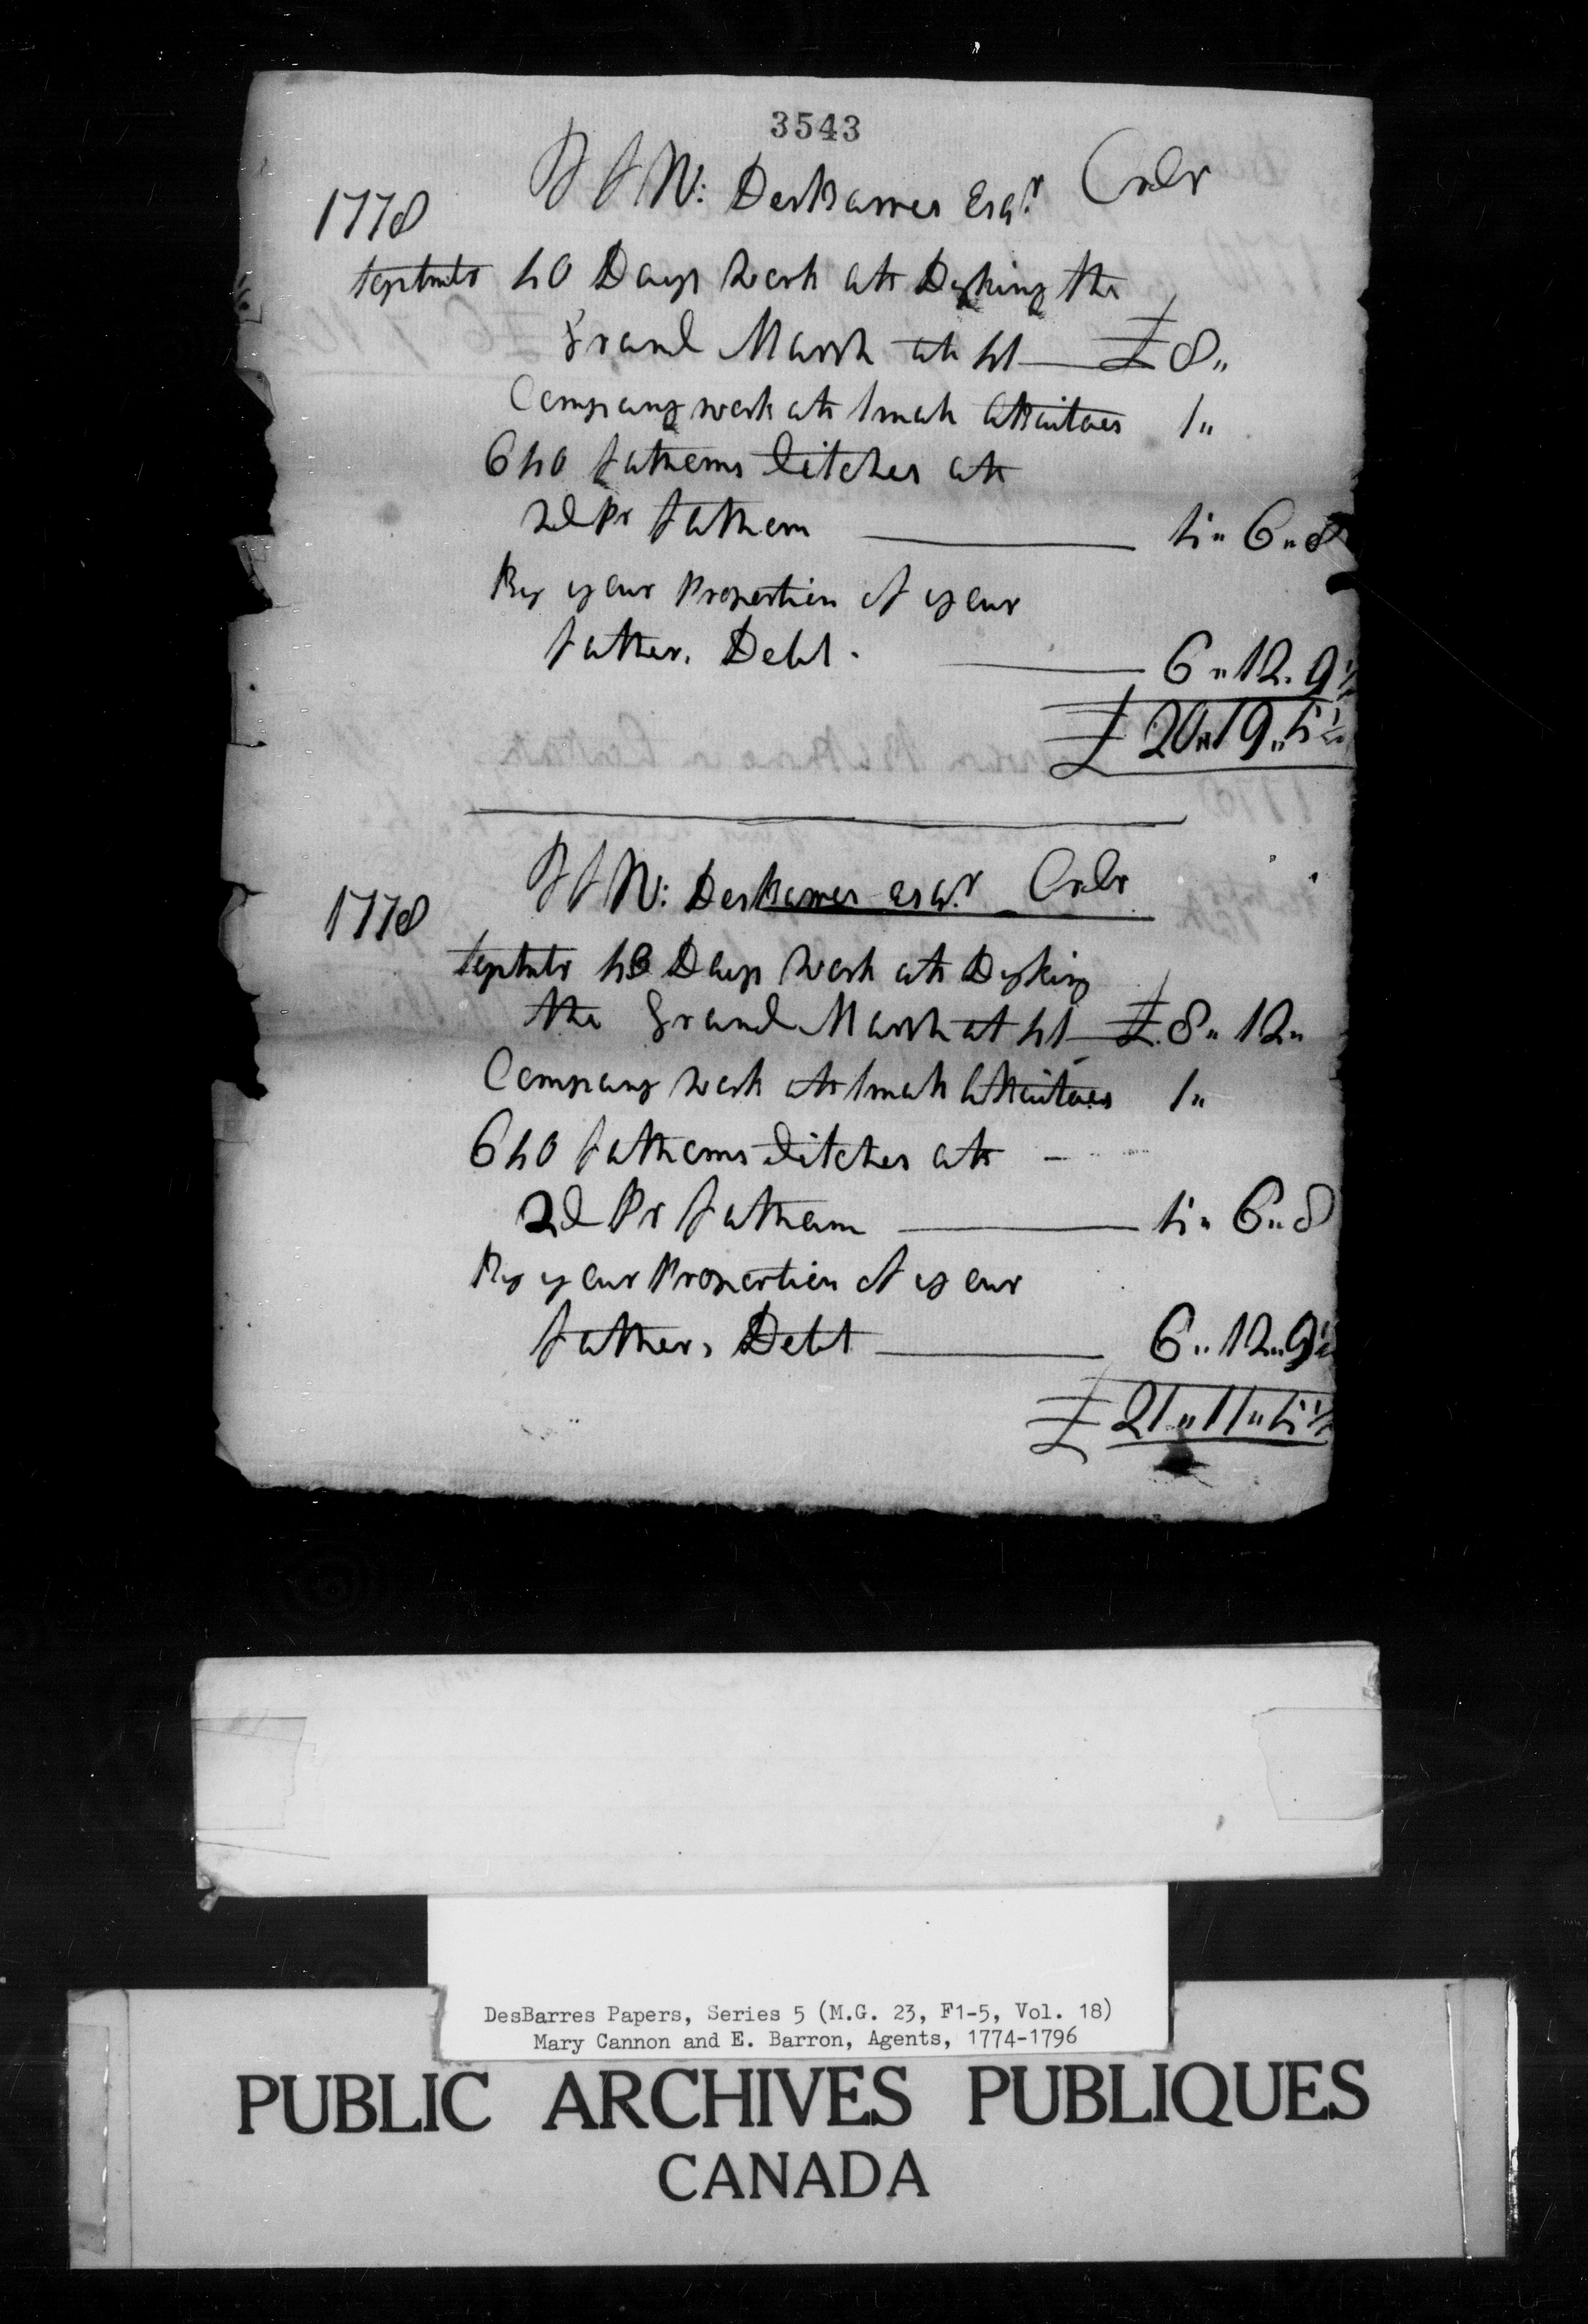 3543
J F W: DesBarres Esqr. Credr
1778
Septmbr 40 Days work att Dyking the
Grand Marsh att 4s £8,,
Company work att 1,,
640 fathoms ditches att
2d Pr fathom 5,, 6,, 8
By your Proportion of your
fathers Debt. 6,, 12,, 9½
£ 20,, 19,, 5½
J F W: DesBarres Esqr. Credr
1778
Septmbr 43 Days work att Dyking
the Grand Marsh at 4s £8,, 12,,
Company work att 1,,
640 fathoms ditches att
2d Pr fathom 5,, 6,, 8
By your Proportion of your
fathers Debt 6,, 12,, 9½
£ 21,, 11,, 5½
DesBarres Papers, Series 5 (M.G. 23, F1-5, Vol. 18)
Mary Cannon and E. Barron, Agents, 1774-1796
PUBLIC ARCHIVES PUBLIQUES
CANADA